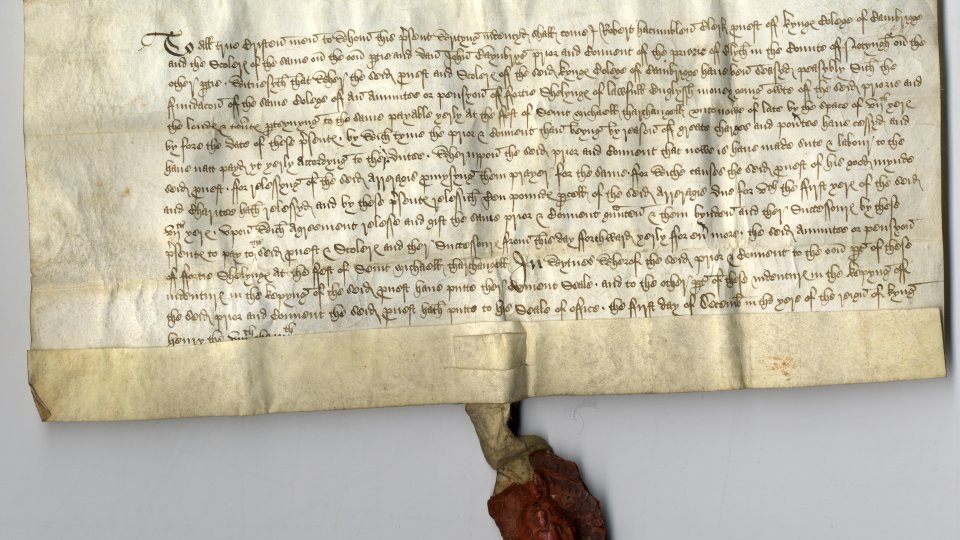 To all true Cristen men to Whom this psent Writyng indentyd shall come I Robert hacumblen Clerk provest off kynge College of Cambrigge
and the Scolers of the same on the oon ptie and dan John Baynbryg prior and Convent of the priorie of Blyth in the Counte of Notyngham on the
other ptie Witnesseth that Wher the seid provest and Scolers off the seid kynge College of Cambrigge have ben seased peasybly Sith the
fundacon of the same College off an Annuitee or pensyon of fortie Shelynge of lawfull Englyssh money goyng owte off the seid priorie and
the londes & rentes pteynyng to the same payable yerly at the fest of Seint michaell tharchangell unto nowe of late by the space of xvij yere
by fore the date of these psentes by Wich tyme the prior & Convent than beyng by reason off greate charges and povertee have cessyd and
have natt payd yt yerly accordyng to ther duetee Wheruppon the seid prior and Convent that nowe is have made sute & labour to the
seid provest for relessyng of the seid arreragis promysyng them prayer for the same for Wiche causes the seid provest of his good mynde
and Charitee hath relessyd and by these psentes relessith Ten pounde pcell of the seid arreragis due for the first yere of the seid
xvij yere upon Wich agreement relesse and gift the same prior & Convent & them byndeth and their Successours by these
psentes to pay to the seid provest & Scolers and their Successours from this day forthward yerly for ever more the seid annuitee or pensyon
of fortie Shelynge at the fest of Seint michaell tharchangell In Wytnes Wherof the seid prior & Convent to the oon pte of these
indentures in the kepyng of the seid provest have putte ther Covent Seale and to the other pte of these indentures in the kepyng off
the seid prior and Convent the seid provest hath putte to his Seale of office the first day of Decemb in the yere of the reign of kyng
henry the